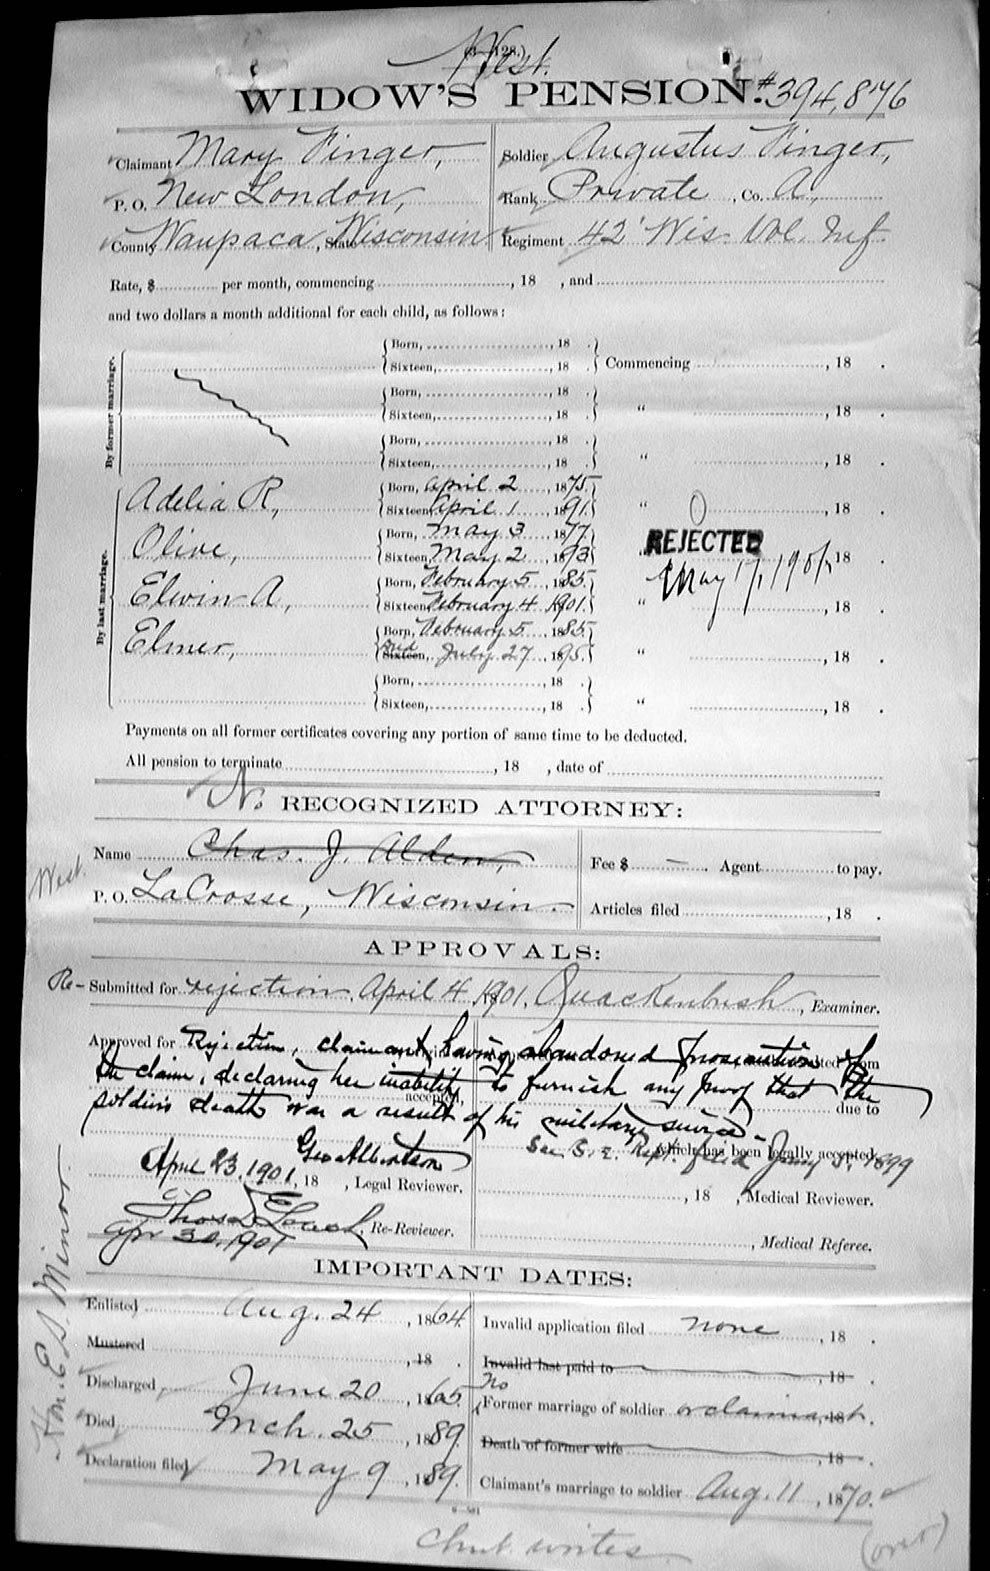 West.
(3—128.)
WIDOW'S PENSION. #394,876
Claimant Mary Finger, Soldier Augustus Finger,
P. O. New London, Rank Private, Co. A,
County Waupaca, State Wisconsin Regiment 42' Wis. Vol. Inf.
Rate, $ per month, commencing , 18 , and
and two dollars a month additional for each child, as follows:
By former marriage.
Born, , 18 .
Sixteen, , 18 . Commencing , 18 .
Born, , 18
Sixteen, , 18 . " , 18 .
Born, , 18
Sixteen, , 18 . " , 18 .
By last marriage.
Adelia R, Born, April 2, 1875.
Sixteen, April 1, 1891. " , 18 .
Olive, Born, May 3, 1877.
Sixteen, May 2, 1893. " REJECTED , 18 .
May 17, 1901
Elwin A, Born, February 5, 1885.
Sixteen, February 4, 1901. " , 18 .
Elmer, Born, February 5, 1885.
Died Sixteen, July 27, 1895. " , 18 .
Born, , 18 .
Sixteen, , 18 . " , 18 .
Payments on all former certificates covering any portion of same time to be deducted.
All pension to terminate , 18 , date of
No. RECOGNIZED ATTORNEY:
Name Chas. J. Alden, Fee $ — . Agent to pay.
West.
P. O. LaCrosse, Wisconsin. Articles filed , 18 .
APPROVALS:
Re- Submitted for rejection, April 4, 1901, Quackenbush, Examiner.
Approved for Rejection, claimant having abandoned prosecution of
the claim, declaring her inability to furnish any proof that the
accepted, due to
soldiers death was a result of his military service.
which has been legally accepted.
See S. E. Rept. filed Jany 5, 1899
April 23, 1901, 18 Geo Albertson, Legal Reviewer. , 18 , Medical Reviewer.
Re-Reviewer.
Apr 30, 1901 , Medical Referee.
Hon. E. S. Minor
IMPORTANT DATES:
Enlisted Aug. 24, 1864. Invalid application filed none, 18 .
Mustered , 18 . Invalid last paid to , 18 .
Discharged, June 20, 1865 No Former marriage of soldier or claimant, 18 .
Died Mch. 25, 1889. Death of former wife , 18 .
Declaration filed May 9, 1889. Claimant's marriage to soldier Aug. 11, 1870.
Clmt. writes
(over)